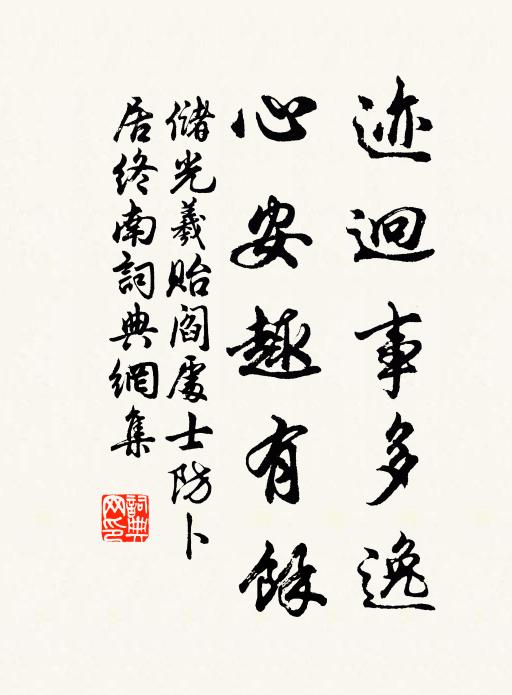 迹迥事多逸
心安趣有餘
儲光羲貽閻處士防卜
居終南詞典網集
詞典網印